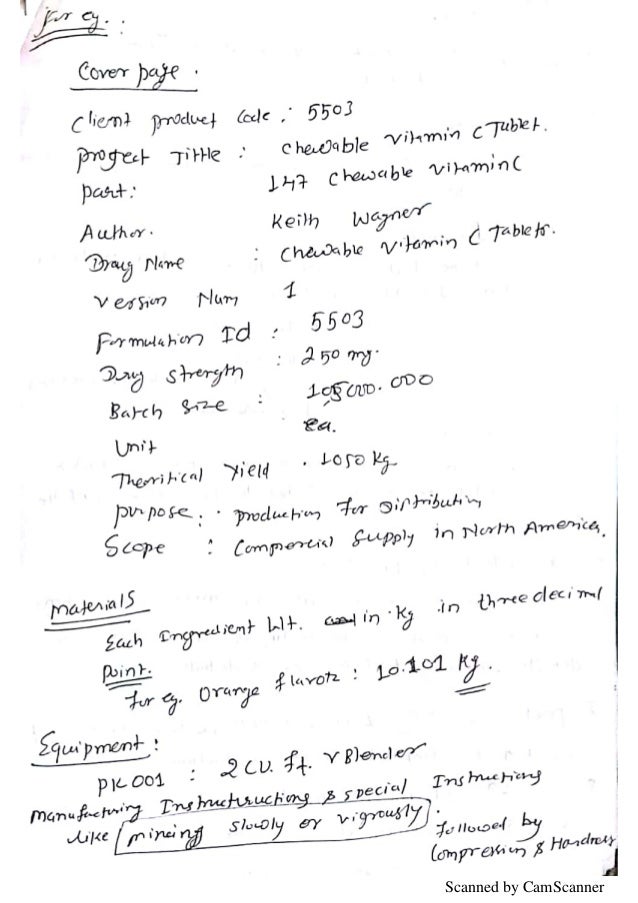 For eg. :
Cover page .
Client product Code : 5503
Project Tittle : Chewable vitamin C Tublet.
part: 147 Chewable vitamin C
Author. Keith Wagner
Drug Name : Chewable Vitamin C Tablets.
Version Num 1
Formulation Id : 5503
Drug strength : 250 mg.
Batch size : 105000.000
Unit ea.
Theoritical Yield . 1050 kg
purpose : . production for Distribution
Scope : Commercial Supply in North America.
Materials
Each Ingredient Wt. in kg in three decimal
Point.
for eg. Orange flavor : 10.101 kg.
Equipment :
PK 001 : 2 CU. ft. V Blender
Manufacturing Instructuructions & special Instructions
like mixing slowly or vigrously .
followed by
Compression & Hardness
Scanned by CamScanner